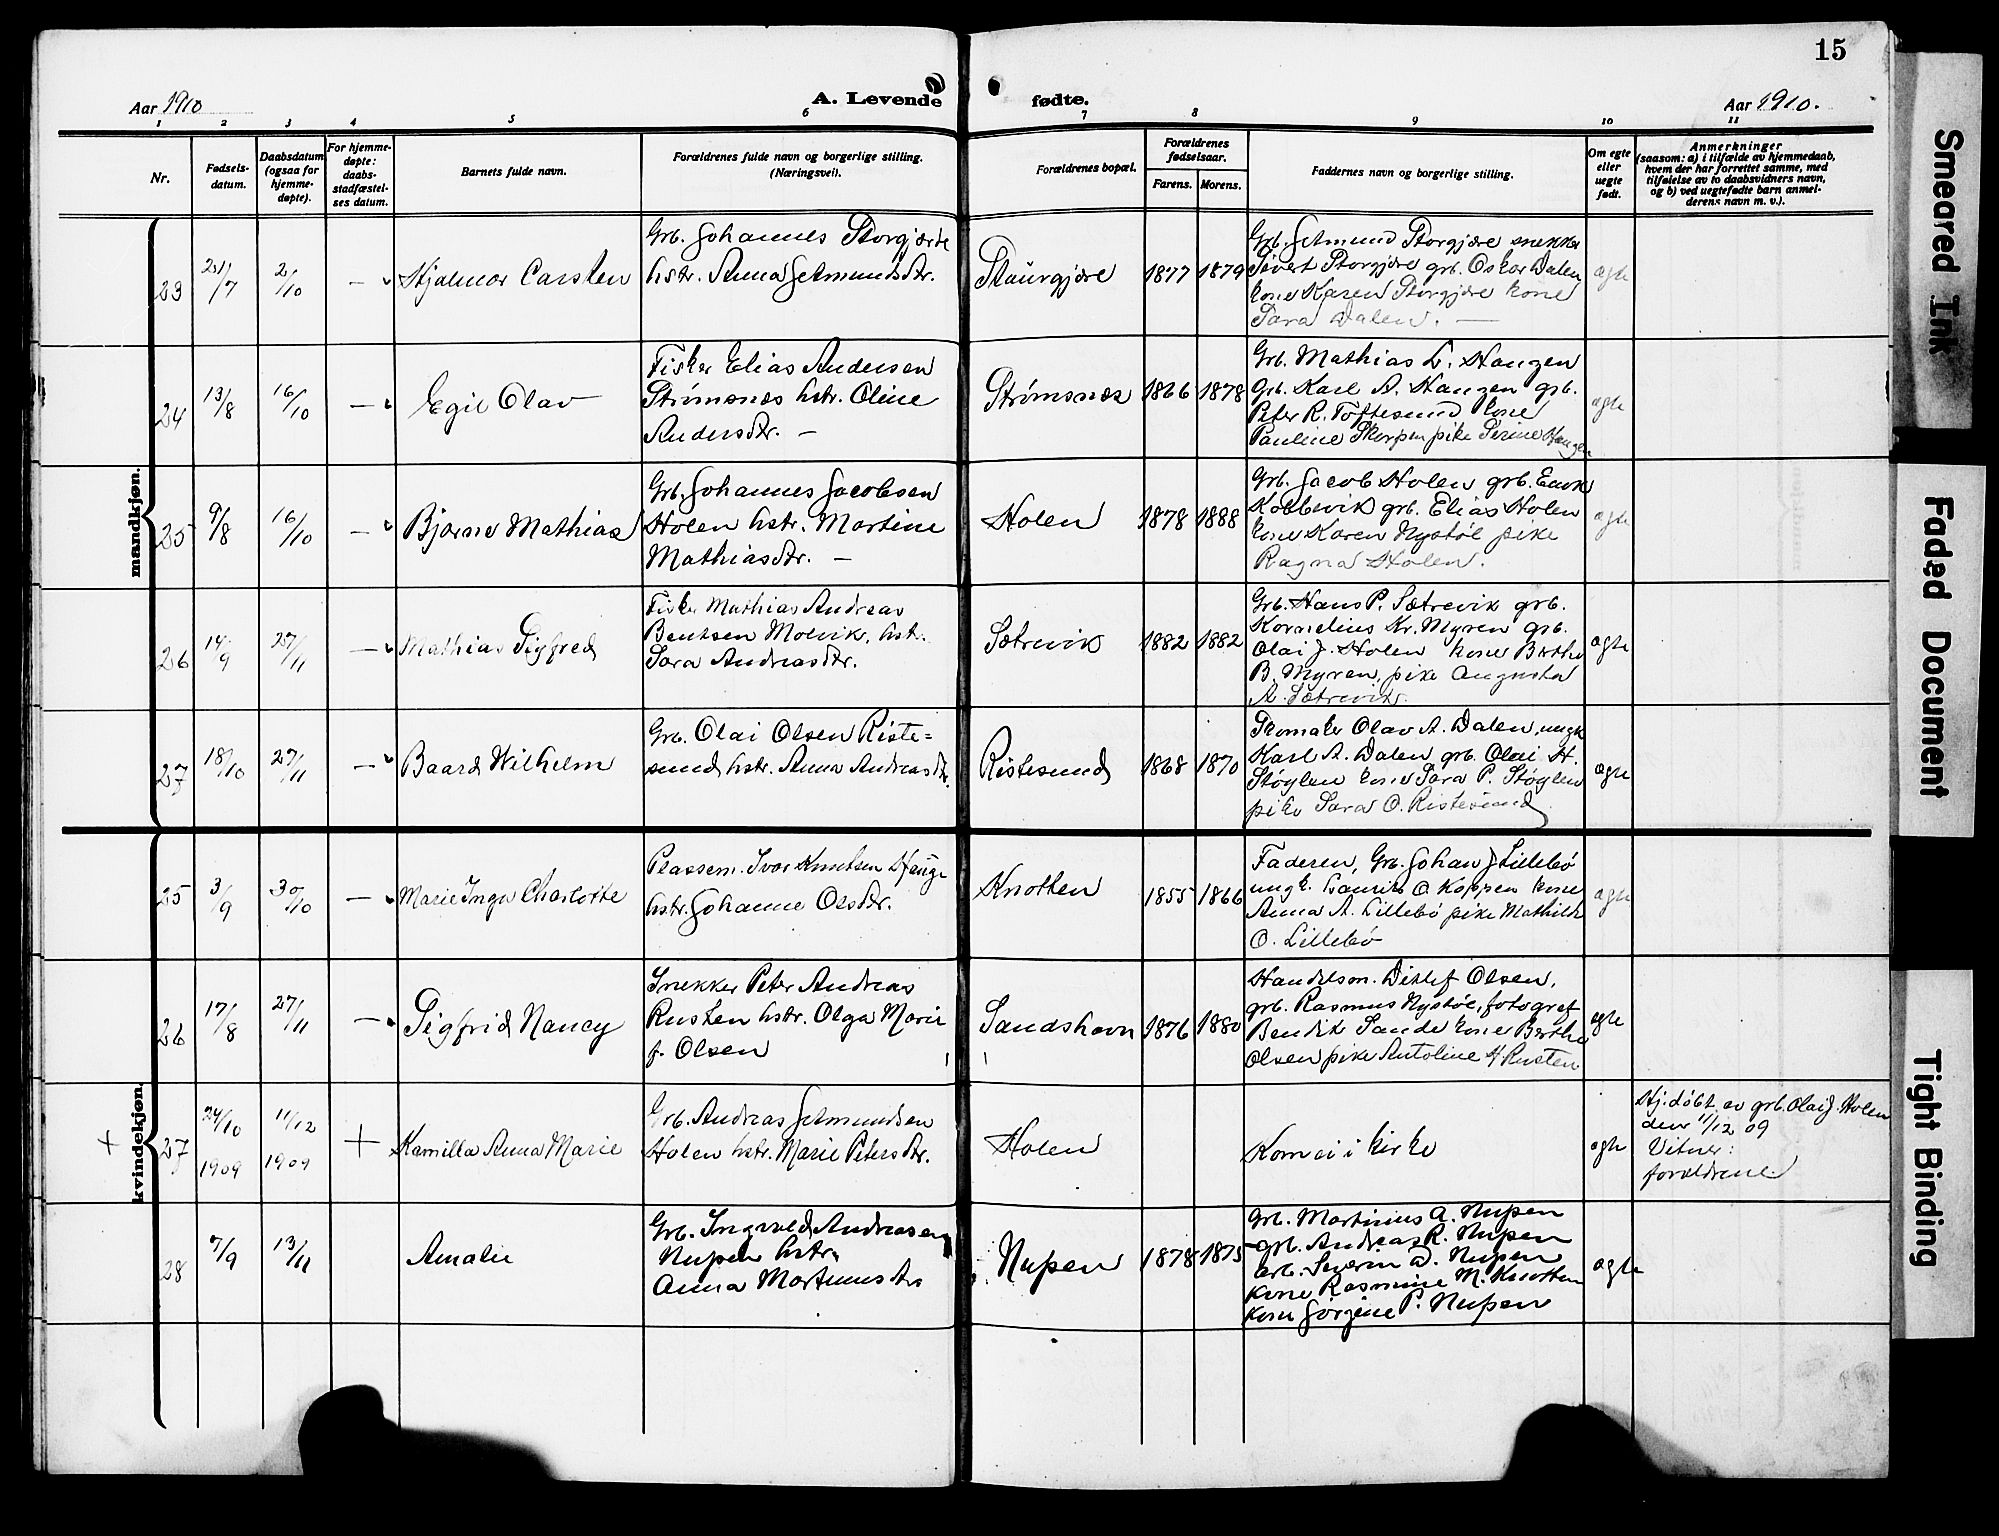 15
Aar 1910
A. Levende
fødte.
Aar 1910.
1 2 3 4 5 6 7 8 9 10 11
Nr.
Fødsels-
datum.
Daabsdatum
(ogsaa for
hjemme-
døpte).
For hjemme-
døpte:
daabs-
stadfæstel-
ses datum.
Barnets fulde navn.
Forældrenes fulde navn og borgerlige stilling.
(Næringsvei).
Forældrenes bopæl.
Forældrenes
fødselsaar.
Farens.
Morens.
Faddernes navn og borgerlige stilling.
Om egte
eller
uegte
født.
Anmerkninger
(saasom: a) i tilfælde av hjemmedaab,
hvem der har forrettet samme, med
tilføielse av to daabsvidners navn,
og b) ved uegtefødte barn anmel-
derens navn m. v.).
mandkjøn.
23
21/7
2/10
—
Hjalmar Carsten
Grb. Johannes Storgjære
hstr. Anna Gjetmundsdtr.
Staurgjære
1877
1879
Grb. Getmund Storgjære snekker
Sivert Storgjære grb. Oskar Dalen
kone Karen Storgjære kone
Sara Dalen. —
ægte
24
13/8
16/10
—
Egil Olav
Fisker Elias Andersen
Strømsnæs hstr. Oline
Andersdtr. —
Strømsnæs
1866
1878
Grb. Mathias L. Haugen
Grb. Karl A. Haugen grb.
Peter R. Toftesund kone
Pauline Skorpen pike Serine Haugen
ægte
25
9/8
16/10
—
Bjarne Mathias
Grb. Johannes Jacobsen
Holen hstr. Martine
Mathiasdtr. —
Holen
1878
1888
Grb. Jacob Holen grb. Enok
Kobbevik grb. Elias Holen
kone Karen Nystøl pike
Ragna Holen.
ægte
26
14/9
27/11
—
Mathias Sigfred
Fisker Mathias Andreas
Bentsen Molvik, hstr.
Sara Andreasdtr.
Sætrevik
1882
1882
Grb. Hans P. Sætrevik grb.
Kornelius Kr. Myren grb.
Olai J. Holen kone Berthe
B. Myren, pike Augusta
A. Sætrevik.
ægte
27
18/10
27/11
—
Baard Wilhelm
Grb. Olai Olsen Riste=
sund hstr. Anna Andreasdtr.
Ristesund
1868
1870
Skomaker Olav A. Dalen, ungk.
Karl A. Dalen grb. Olai H.
Støylen kone Sara P. Støylen
pike Sara O. Ristesund
ægte
kvindekjøn.
25
3/9
30/10
—
Marie Inga Charlotte
Plassem. Ivar Knutsen Hauge
hstr. Johanne Olsdtr.
Knotten
1855
1866
Faderen, Grb. Johan J Lillebø
ungk. Laurits O Koppen kone
Anna A. Lillebø pike Mathilde
O. Lillebø
ægte
26
17/8
27/11
—
Sigfrid Nancy
Snekker Peter Andreas
Rusten hstr. Olga Marie
f. Olsen
Sandshavn
1876
1880
Handelsm. Ditlef Olsen,
grb. Rasmus Nystøl, fotograf
Bendik Sande kone Berthe
Olsen pike Antoline H Rusten
ægte
+
27
24/10
1909
11/12
1909
+
Kamilla Anna Marie
Grb. Andreas Getmundsen
Holen hstr. Marie Petersdtr.
Holen
Kom ei i kirke
ægte
Hj. døbt av grb. Olai J. Holen
den 11/12 09
Vitner:
forældrene
28
7/9
13/11
Amalie
Grb. Ingvald Andreasen
Nupen hstr.
Anna Martinusdtr
Nupen
1878
1875
Grb. Martinius A. Nupen
grb. Andreas R. Nupen
Grb. Severin D. Nupen
Kone Rasmine M. Knotten
Kone Jørgine P. Nupen
ægte
Smeared Ink
Faded Document
Tight Binding